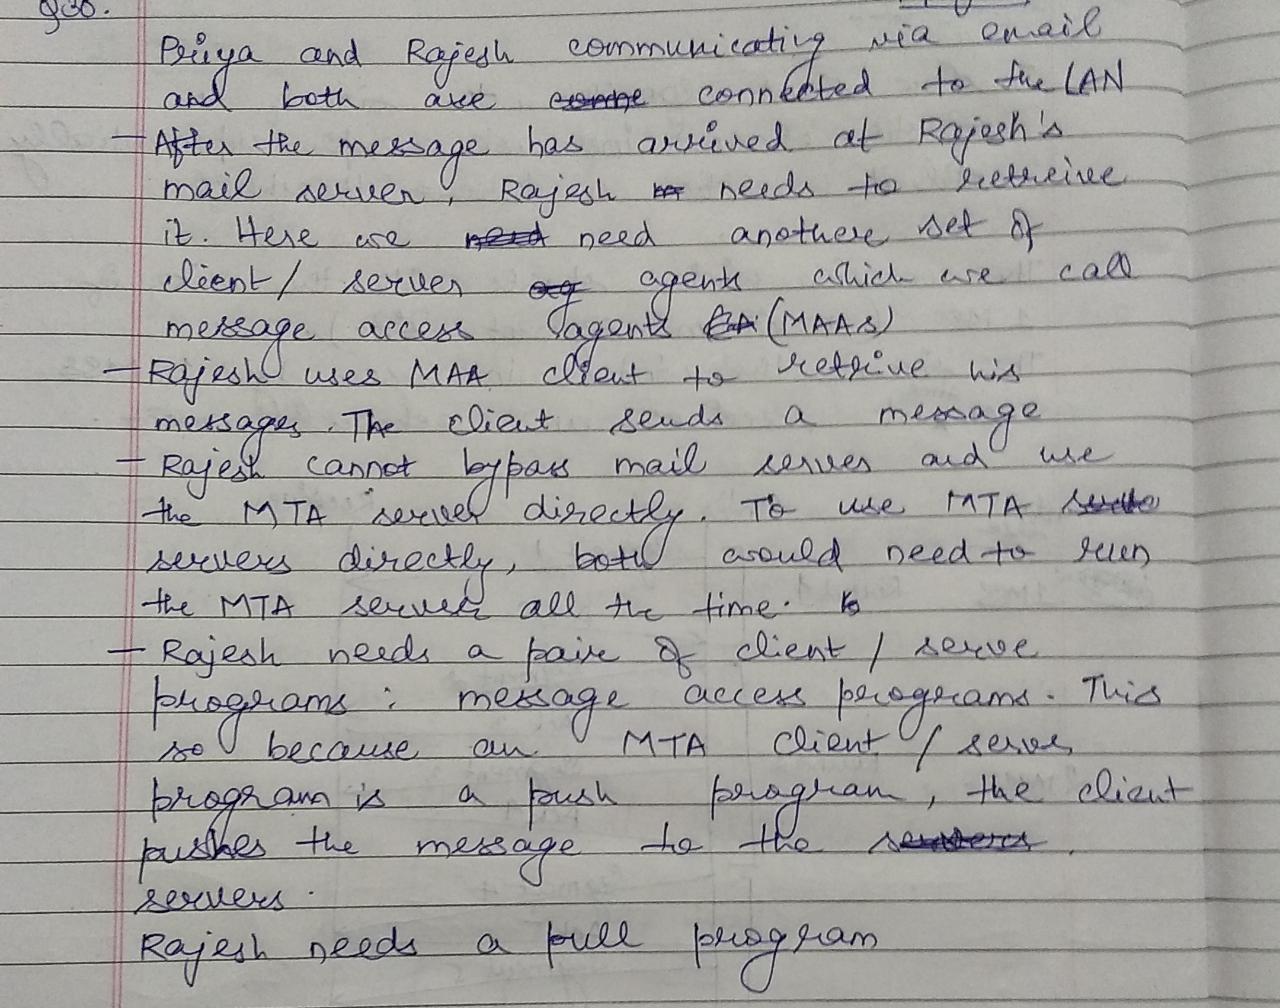 Q3b.
Priya and Rajesh communicating via email
and both are connected to the LAN
- After the message has arrived at Rajesh's
mail server, Rajesh needs to retreive
it. Here we need another set of
client/ server agents which we call
message access agents (MAAs)
- Rajesh uses MAA client to retrive his
messages. The client sends a message
- Rajesh cannot bypass mail server and use
the MTA server directly. To use MTA
servers directly, both would need to run
the MTA server all the time.
- Rajesh needs a pair of client / serve
programs : message access programs. This
so because an MTA client / server
program is a push program, the client
pushes the message to the
servers.
Rajesh needs a pull program